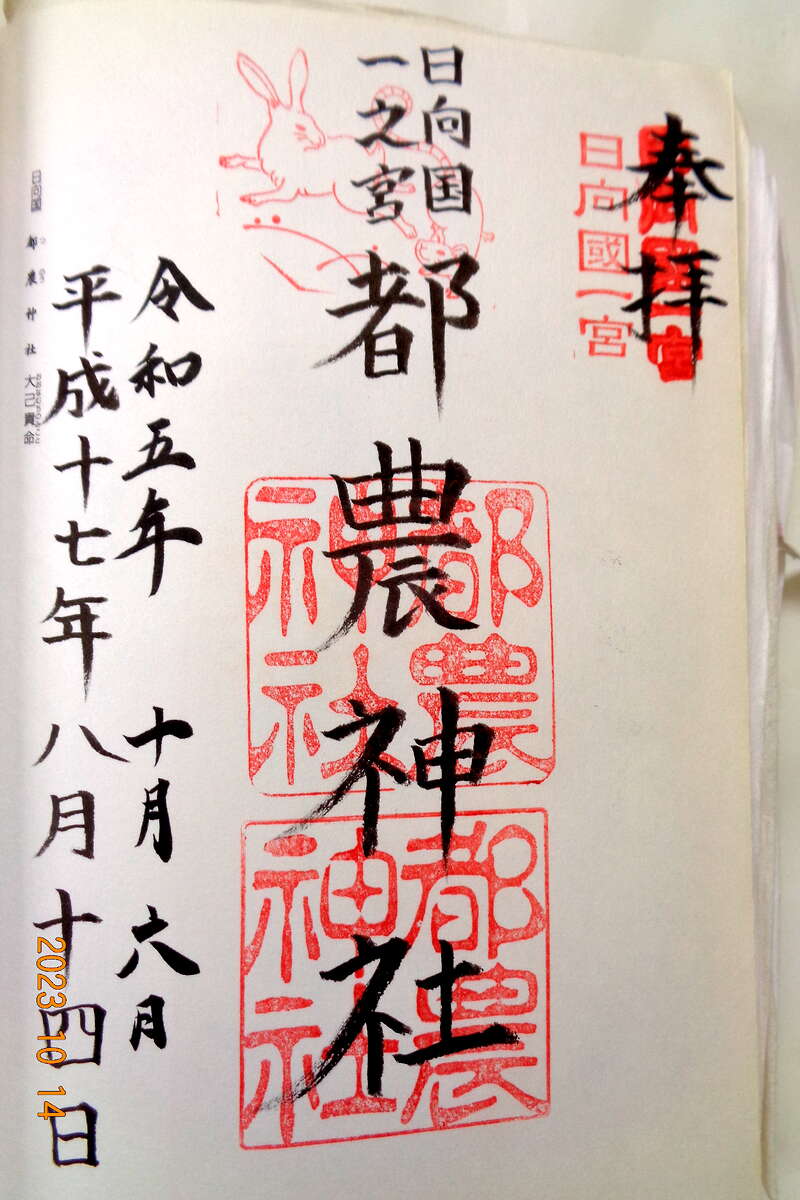 奉拝
日向國一宮
日向国
一之宮
都農神社
都農神社
都農神社
令和五年 十月 六月
平成十七年八月十四日
日向国 都農神社 大己貴命
2023 10 14